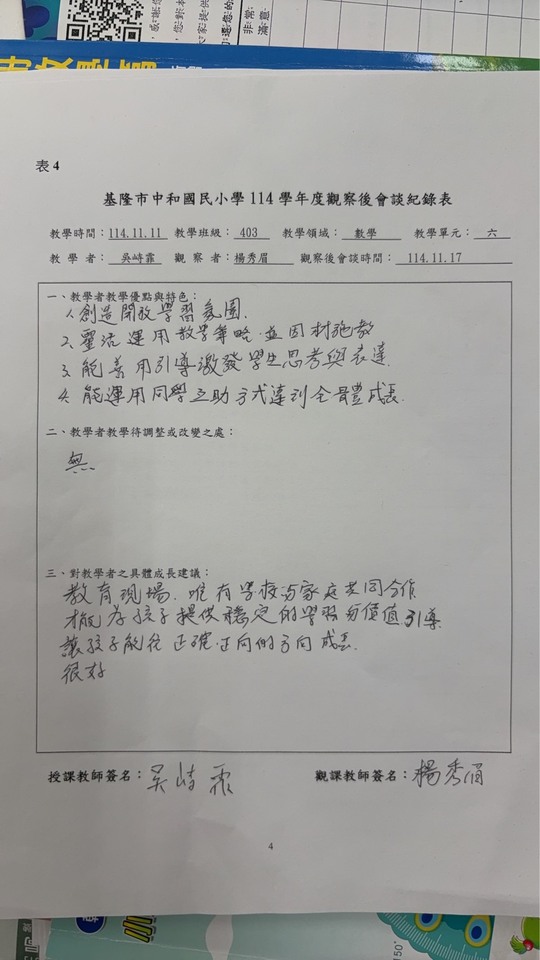 非常滿意
表 4
基隆市中和國民小學 114 學年度觀察後會談紀錄表
教學時間：114.11.11 教學班級：403 教學領域：數學 教學單元：六
教學者：吳峙霏 觀察者：楊秀眉 觀察後會談時間：114.11.17
一、教學者教學優點與特色：
1. 創造開放學習氛圍.
2. 靈活運用教學策略.並因材施教
3. 能善用引導激發學生思考與表達.
4. 能運用同學互助方式達到全體成長.
二、教學者教學待調整或改變之處：
無
三、對教學者之具體成長建議：
教育現場.唯有學校与家庭共同合作
才能為孩子提供穩定的學習与價值引導
讓孩子能往正確.正向的方向成長.
很好
授課教師簽名：吳峙霏 觀課教師簽名：楊秀眉
4
50°